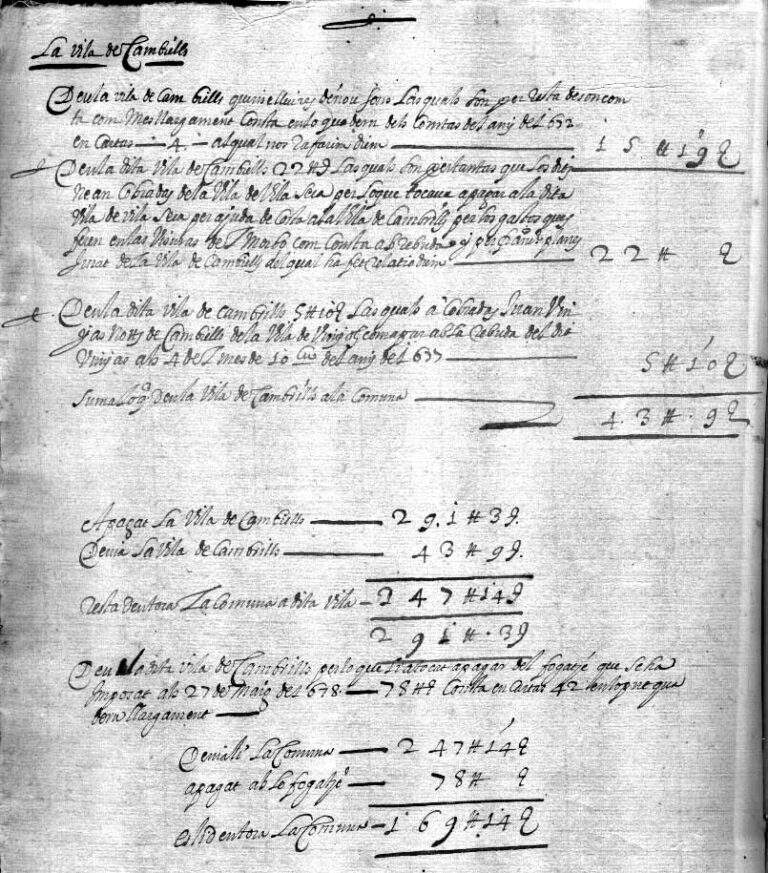 La vila de Cambrills
Deu la vila de Cambrills quinse lliures dénou sous Las quals son per resta de son com
ta com Mes llargament Consta en lo quadern dels Comtas del any del 632
en Cartas — 4 — al qual nos rafarim dich 15 ll 19 S
Deu la dita Vila de Cambrills 22 ll S Las quals son per tantas que los dits
ne an Cobradas de la Vila de Vila Seca per lo que tocava a pagar a la dita
Vila de vila Seca per ajuda de Costa a la Vila de Cambrills per los gastos que
feren en las de com Consta ab Rebuda y per
Jurat de la Vila de Cambrills del qual ha fet relatio dich 22 ll S
Deu la dita vila de Cambrills 5 ll 10 S Las quals a Cobradas Juan Vin
yas Notts de Cambrills de la Vila de com apar ab la Rebuda del dit
Vinyas als 4 de l mes de 10 del any del 637 5 ll 10 S
Suma Lo q Deu la Vila de Cambrills a la Comuna 43 ll 9 S
A pagat La Vila de Cambrills 291 ll 3 S
Devia La Vila de Cambrills 43 ll 9 S
resta deutora La Comuna a dita Vila 247 ll 14 S
291 ll 3 S
Deu la dita vila de Cambrills per lo que li a tocat a pagar del fogatje que se ha
Imposat als 27 de Maig del 638 — 78 ll S Consta en Cartas 42
llargament
Devia li La Comuna 247 ll 14 S
a pagat ab lo fogatje 78 ll S
es li deutora La Comuna 169 ll 14 S